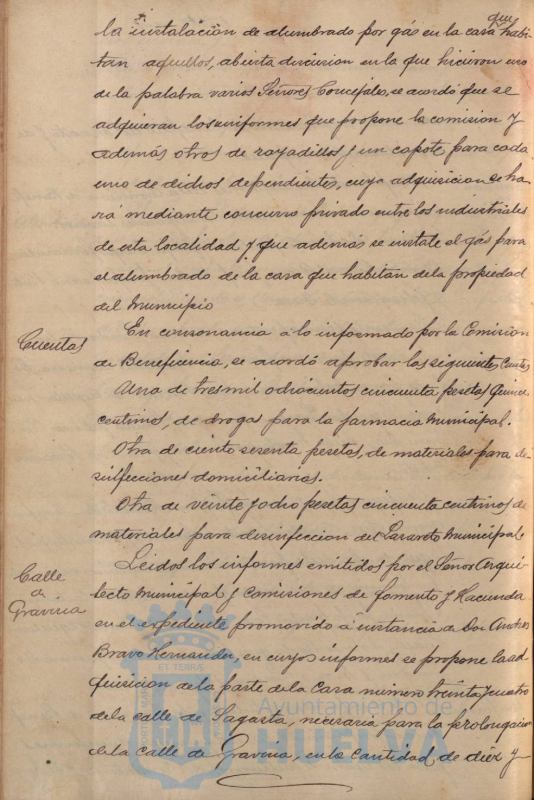 que
la instalación de alumbrado por gás en la casa habi-
tan aquellos, abierta discusion en la que hicieron uso
de la palabra varios Señores Concejales, se acordó que se
adquieran los uniformes que propone la comision y
además otros de rayadillos y un capote para cada
uno de dichos dependientes, cuya adquisicion se ha-
rá mediante concurso privado entre los industriales
de esta localidad y que además se instale el gás para
el alumbrado de la casa que habitan de la propiedad
del Municipio
Cuentas
En consonancia a lo informado por la Comision
de Beneficencia, se acordó aprobar las siguientes Cuentas
Una de tres mil ochocientos cincuenta pesetas quince
centimos, de drogas para la farmacia Municipal.
Otra de ciento sesenta pesetas, de materiales para de-
sinfecciones domiciliarias.
Otra de veinte y ocho pesetas cincuenta centimos de
materiales para desinfeccion del Lazareto Municipal.
Calle
de
Gravina
Leidos los informes emitidos por el Señor Arqui-
tecto Municipal y Comisiones de fomento y Hacienda
en el expediente promovido á instancia de Don Andres
Bravo Hernandez, en cuyos informes se propone la ad-
quisicion de la parte de la Casa número treinta y cuatro
de la calle de Sagasta, necesaria para la prolongacion
de la calle de Gravina, en la cantidad de diez y
Ayuntamiento de
HUELVA